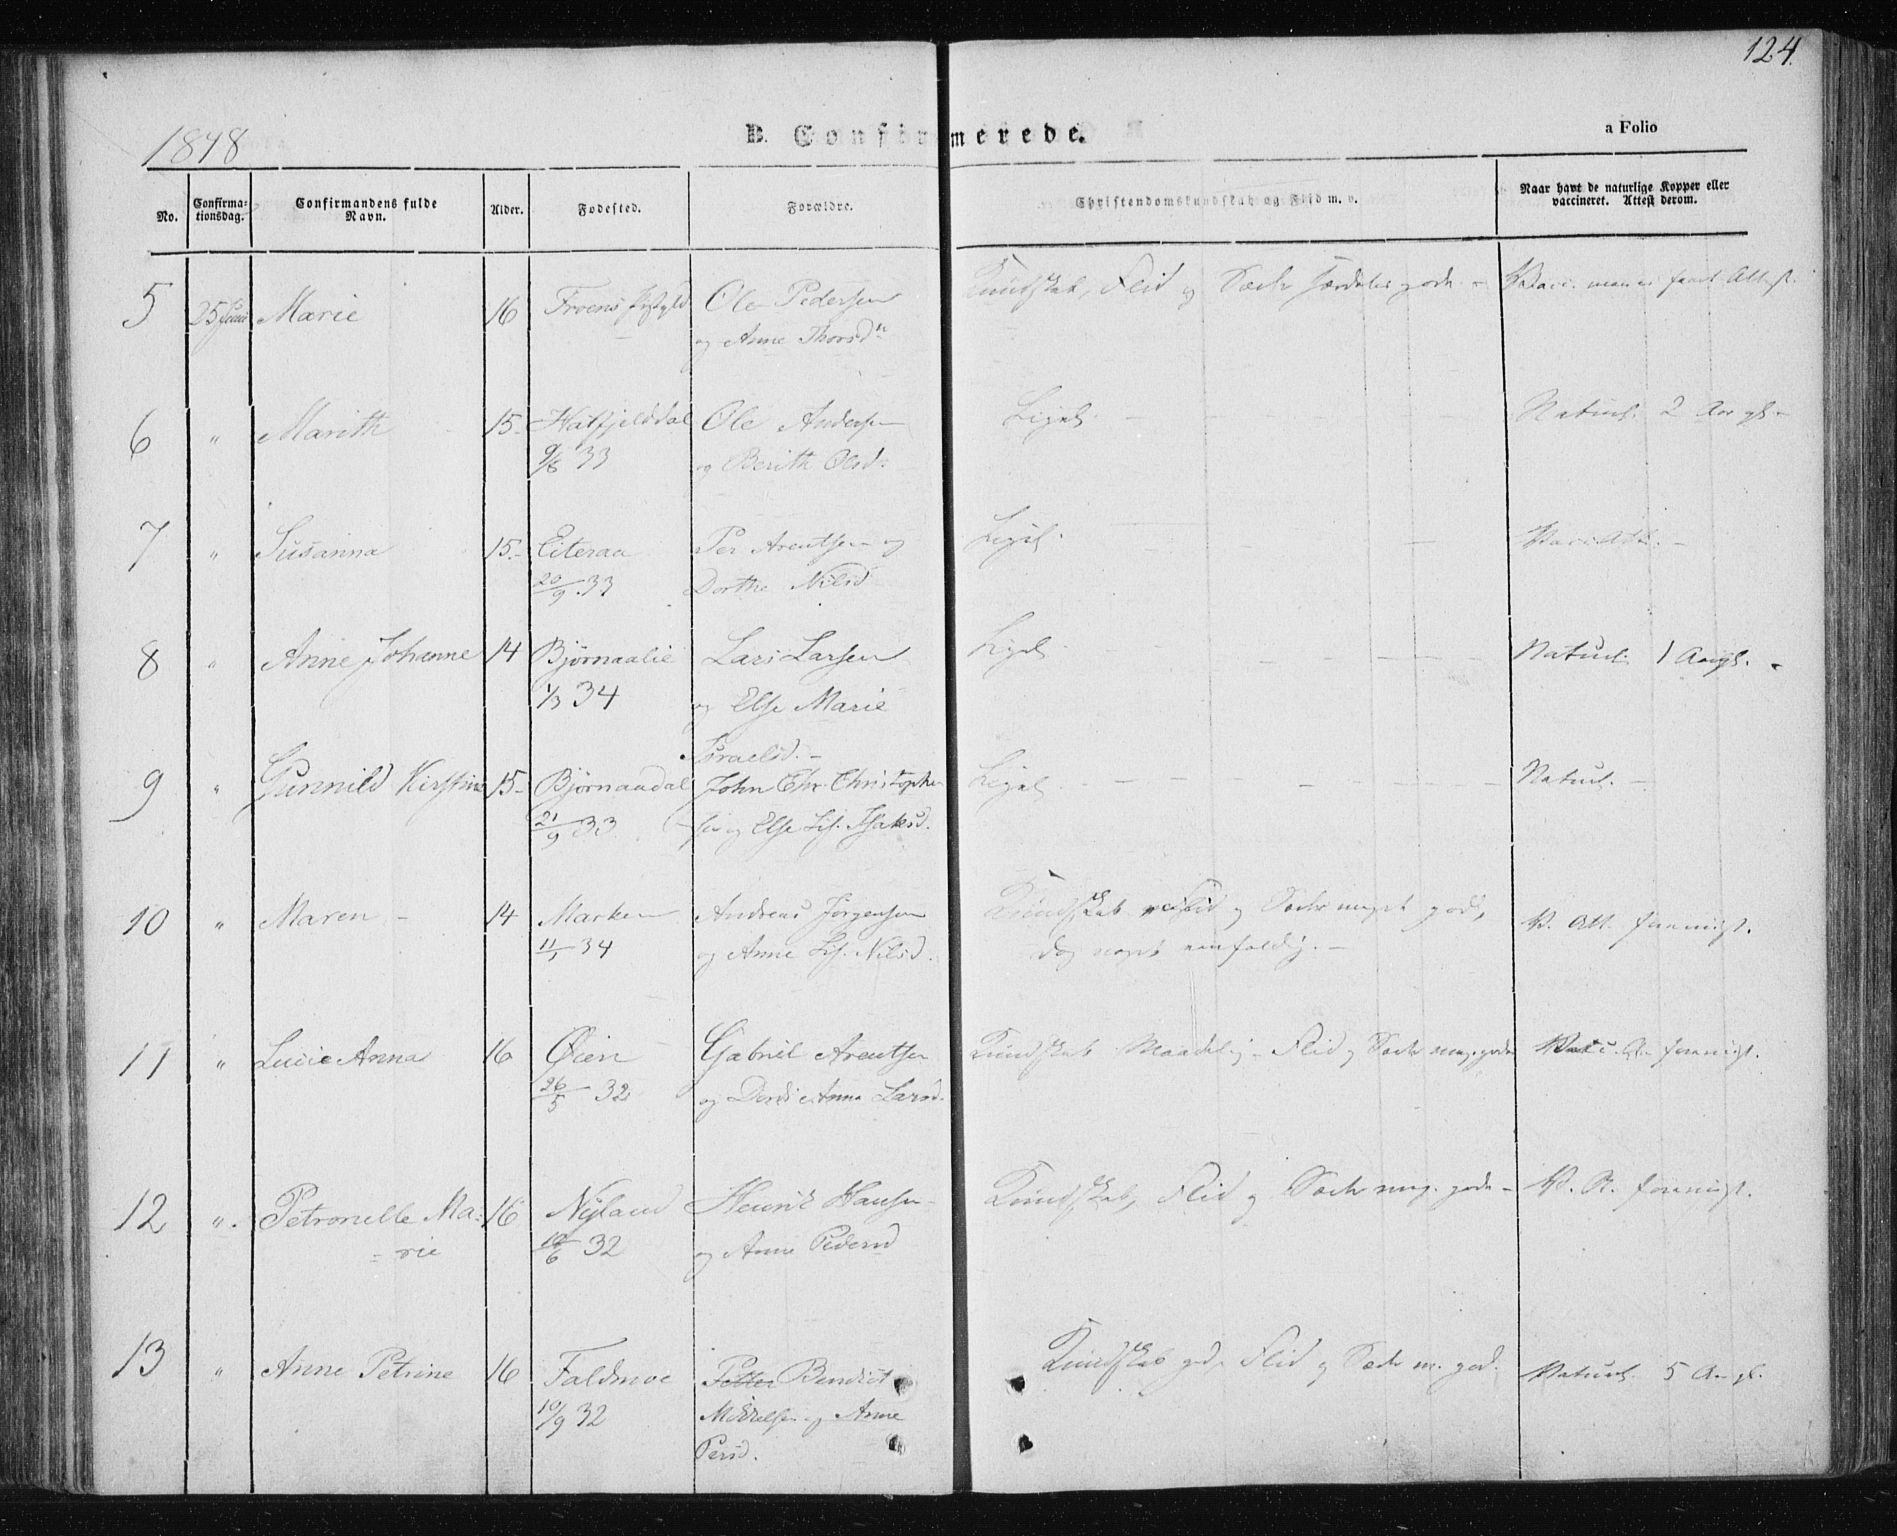 124.
1848
B. Confirmerede.
a Folio
No.
Confirma-
tionsdag.
Confirmandens fulde
Navn.
Alder.
Fødested.
Forældre.
Christendomskundskab og Flid m. v.
Naar havt de naturlige Kopper eller
vaccineret. Attest derom.
5 25 Juni Marie 16 Ole Pedersen Kundskab, Flid og Sæder særdeles gode -
og Anne Thorsdn
6 " Marith 15- Hatfjelddal Ole Andersen Ligel. Naturl. 2 Aar gl. -
9/6 33 og Berith Olsd.
7 " Susanna 15- Eiteraa Per Arentsen og Ligel. Vacc. Att. -
20/9 33 Dorthe Nilsd
8 " Anne Johanne 14 Bjørnaalie Lars Larsen Ligel. Naturl. 1 Aar gl. -
1/3 34 og Else Marie
Israelsd. -
9 " Gunnild Kirstine 15- Bjørnaadal John Chr. Christophe- Ligel. Naturl. -
21/9 33 sen og Else Lis. Isaksd.
10 " Maren - 14 Marken Andreas Jørgensen Kundskab Flid og Sæder meget god, V. Att. foreviist.
11/1 34 og Anne Lis. Nilsd. dog noget eenfoldig. -
11 " Lucie Anna 16 Øien Gabriel Arentsen Kundskab Maadelig - Flid og Sæder meg. gode Vacc. Att. foreviist.
26/5 32 og Anna Larsd.
12 " Petronelle Ma- 16 Nyland Henrik Hansen Kundskab, Flid og Sæder meg. gode - V. A. foreviist.
= rie 32 og Anne Pedersd
13 " Anne Petrine 16 Faldmoe Petter Bendict Kundskab god. Flid og Sæder m. god. Naturl. 5 Aar gl.
10/9 32 Mikkelsen og Anne
Persd.